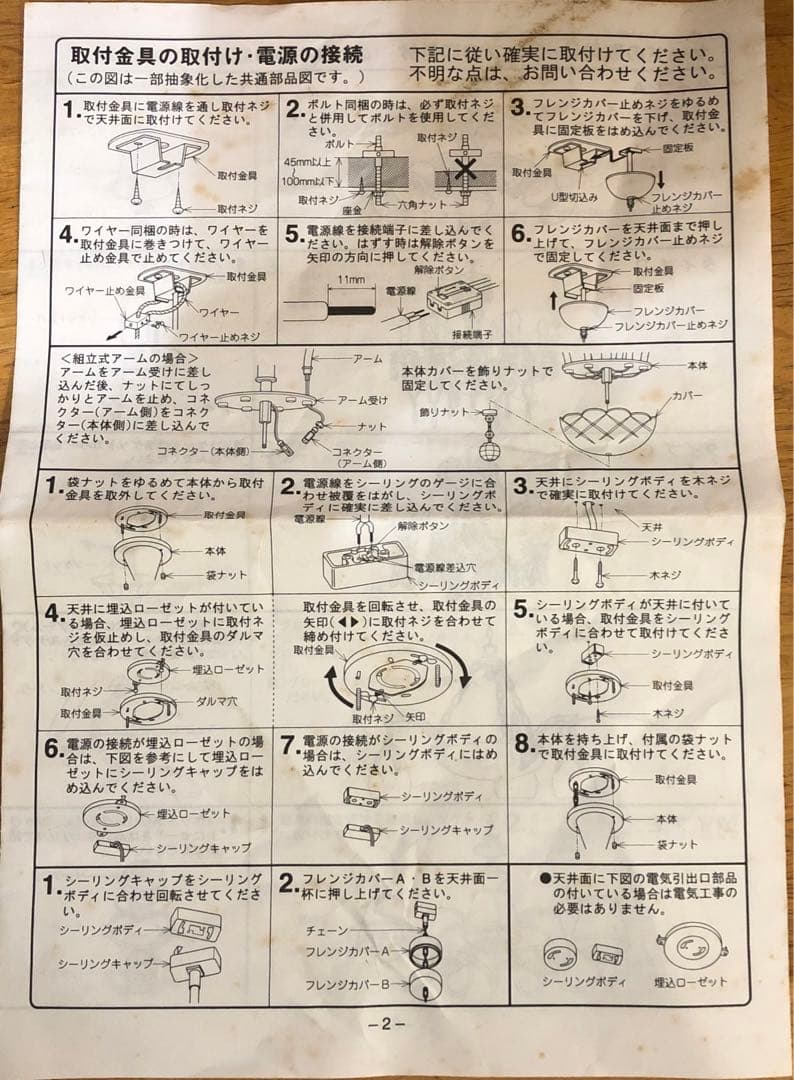 取付金具の取付け・電源の接続
（この図は一部抽象化した共通部品図です。）
下記に従い確実に取付けてください。
不明な点は、お問い合わせください。
1. 取付金具に電源線を通し取付ネジ
で天井面に取付けてください。
取付金具
取付ネジ
2. ボルト同梱の時は、必ず取付ネジ
と併用してボルトを使用してくだ
さい。
ボルト
取付ネジ
45mm以上
100mm以下
取付ネジ
座金
六角ナット
3. フレンジカバー止めネジをゆるめ
てフレンジカバーを下げ、取付金
具に固定板をはめ込んでください。
固定板
取付金具
U型切込み
フレンジカバー
止めネジ
4. ワイヤー同梱の時は、ワイヤーを
取付金具に巻きつけて、ワイヤー
止め金具で止めてください。
取付金具
ワイヤー止め金具
ワイヤー
ワイヤー止めネジ
5. 電源線を接続端子に差し込んでく
ださい。はずす時は解除ボタンを
矢印の方向に押してください。
解除ボタン
11mm
電源線
接続端子
6. フレンジカバーを天井面まで押し
上げて、フレンジカバー止めネジ
で固定してください。
取付金具
固定板
フレンジカバー
フレンジカバー止めネジ
＜組立式アームの場合＞
アームをアーム受けに差し
込んだ後、ナットにてしっ
かりとアームを止め、コネ
クター（アーム側）をコネク
ター（本体側）に差し込んで
ください。
アーム
アーム受け
ナット
コネクター（本体側）
コネクター
（アーム側）
本体カバーを飾りナットで
固定してください。
本体
カバー
飾りナット
1. 袋ナットをゆるめて本体から取付
金具を取外してください。
取付金具
本体
袋ナット
2. 電源線をシーリングのゲージに合
わせ被覆をはがし、シーリングボ
ディに確実に差し込んでください。
電源線
解除ボタン
電源線差込穴
シーリングボディ
3. 天井にシーリングボディを木ネジ
で確実に取付けてください。
天井
シーリングボディ
木ネジ
4. 天井に埋込ローゼットが付いてい
る場合、埋込ローゼットに取付ネ
ジを仮止めし、取付金具のダルマ
穴を合わせてください。
埋込ローゼット
取付ネジ
ダルマ穴
取付金具
取付金具を回転させ、取付金具の
矢印(◀▶)に取付ネジを合わせて
締め付けてください。
取付金具
取付ネジ
矢印
5. シーリングボディが天井に付いて
いる場合、取付金具をシーリング
ボディに合わせて取付けてくださ
い。
シーリングボディ
取付金具
木ネジ
6. 電源の接続が埋込ローゼットの場
合は、下図を参考にして埋込ロー
ゼットにシーリングキャップをは
め込んでください。
埋込ローゼット
シーリングキャップ
7. 電源の接続がシーリングボディの
場合は、シーリングボディにはめ
込んでください。
シーリングボディ
シーリングキャップ
8. 本体を持ち上げ、付属の袋ナット
で取付金具に取付けてください。
取付金具
本体
袋ナット
1. シーリングキャップをシーリング
ボディに合わせ回転させてくださ
い。
シーリングボディ
シーリングキャップ
2. フレンジカバーA・Bを天井面一
杯に押し上げてください。
チェーン
フレンジカバーA
フレンジカバーB
●天井面に下図の電気引出口部品
の付いている場合は電気工事の
必要はありません。
シーリングボディ
埋込ローゼット
－2－